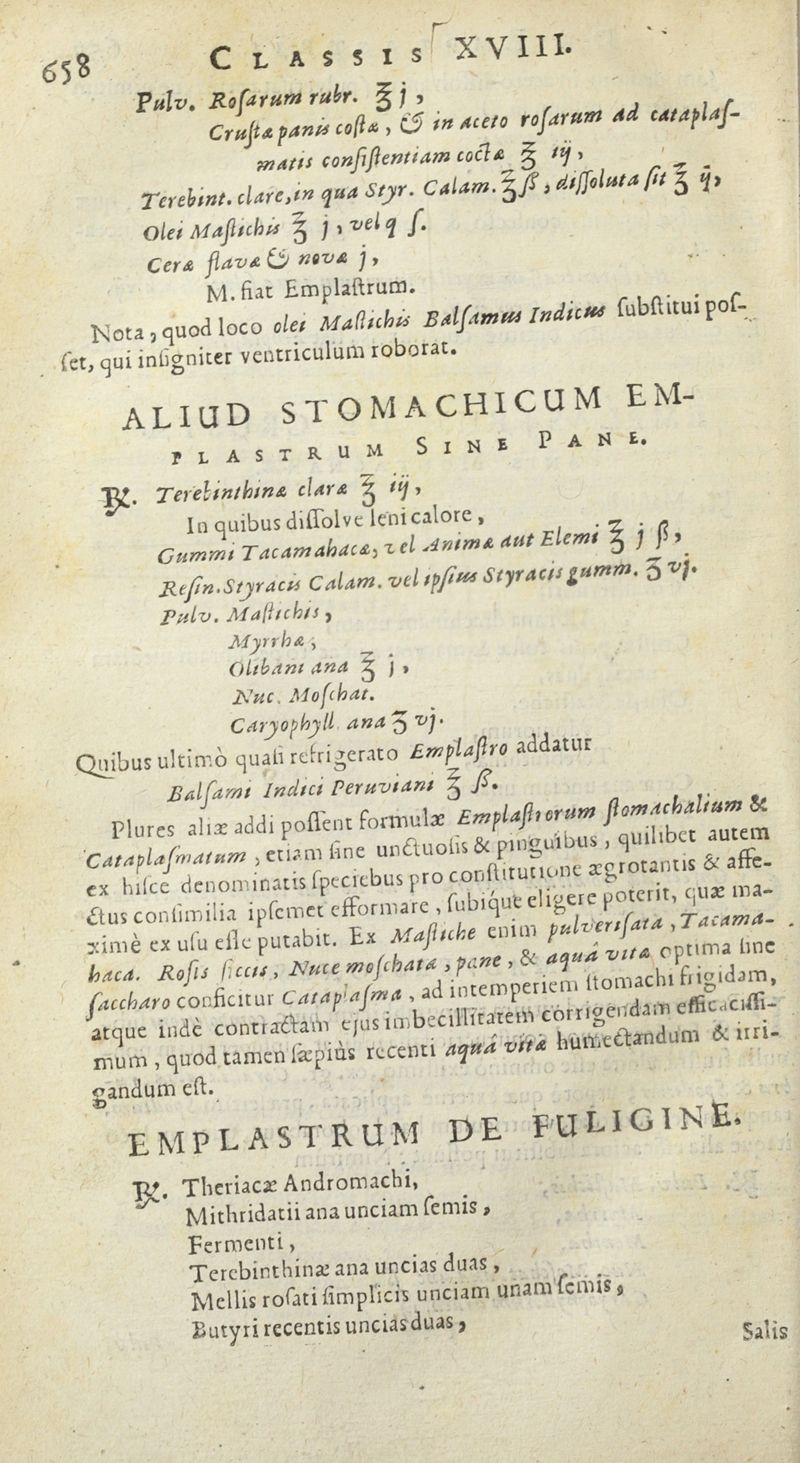 658 CLASSIS XVIII.
Pulv. Rosarum rubr. ℥ j,
Crustæ panis costæ, & in aceto rosarum ad cataplas-
matis consistentiam coctæ ℥ iij,
Terebint. claræ, in qua Styr. Calam. ℥ ß, dissoluta sit ℥ ij,
Olei Mastichis ℥ j, vel q ſ.
Ceræ flavæ & novæ j,
M. fiat Emplastrum.
Nota, quod loco olei Mastichis Balsamus Indicus substitui pos-
set, qui insigniter ventriculum roborat.
ALIUD STOMACHICUM EM-
PLASTRUM SINE PANE.
℞. Terebinthinæ claræ ℥ iij,
In quibus dissolve leni calore,
Gummi Tacamahacæ, vel Animæ aut Elemi ℥ j ß,
Resin. Styracis Calam. vel ipsius Styracis gumm. ʒ vj.
Pulv. Mastichis,
Myrrhæ,
Olibani ana ℥ j,
Nuc. Moschat.
Caryophyll. ana ʒ vj.
Quibus ultimò quasi refrigerato Emplastro addatur
Balsami Indici Peruviani ℥ ß.
Plures aliæ addi possent formulæ Emplastrorum stomachalium &
Cataplasmatum, etiam sine unctuosis & pinguibus, quilibet autem
ex hisce denominatis speciebus pro constitutione ægrotantis & affe-
ctus consimilia ipsemet efformare, subique eligere poterit, quæ ma-
ximè ex usu esse putabit. Ex Mastiche enim pulverisata, Tacama-
haca. Rosis siccis, Nuce moschata, pane, & aquâ vitæ optima sine
saccharo conficitur Cataplasma, ad intemperiem stomachi frigidam,
atque indè contractam ejus imbecillitatem corrigendam efficacissi-
mum, quod tamen sæpiùs recenti aquâ vitæ humectandum & irri-
gandum est.
EMPLASTRUM DE FULIGINE.
℞. Theriacæ Andromachi,
Mithridatii ana unciam semis,
Fermenti,
Terebinthinæ ana uncias duas,
Mellis rosati simplicis unciam unam semis,
Butyri recentis uncias duas,
Salis